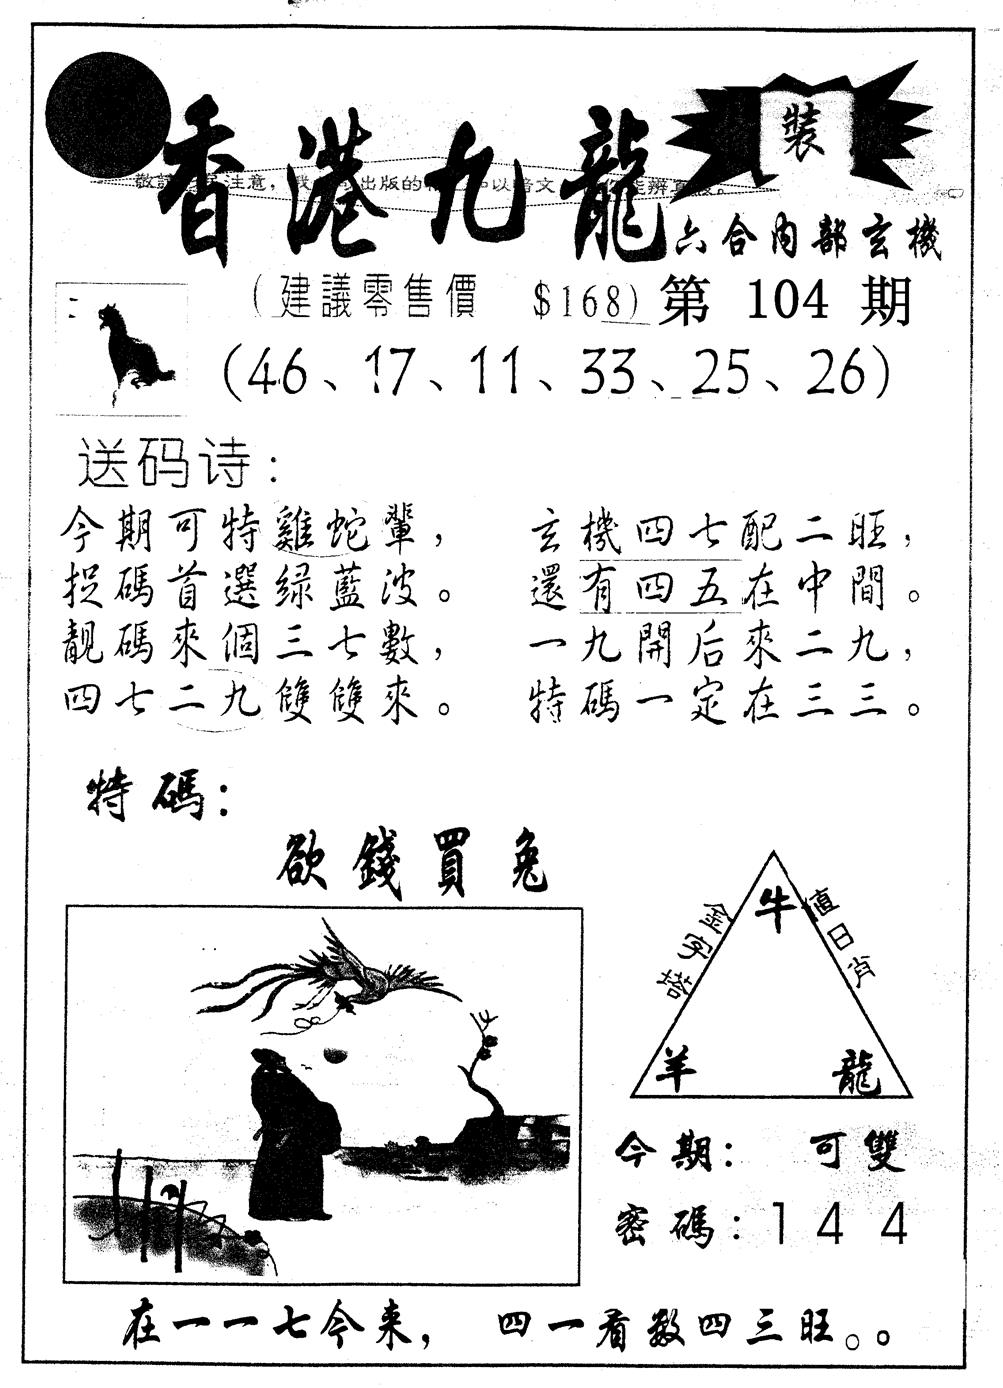 香港九龍
裝
六合內部玄機
(建議零售價 $168) 第 104 期
(46、17、11、33、25、26)
送码诗：
今期可特雞蛇輩， 玄機四七配二旺，
捉碼首選绿藍波。 還有四五在中間。
靚碼來個三七數， 一九開后來二九，
四七二九雙雙來。 特碼一定在三三。
特碼：
欲錢買兔
金字塔
牛
值日肖
羊 龍
今期： 可雙
密碼：144
在一一七今来， 四一看数四三旺。。